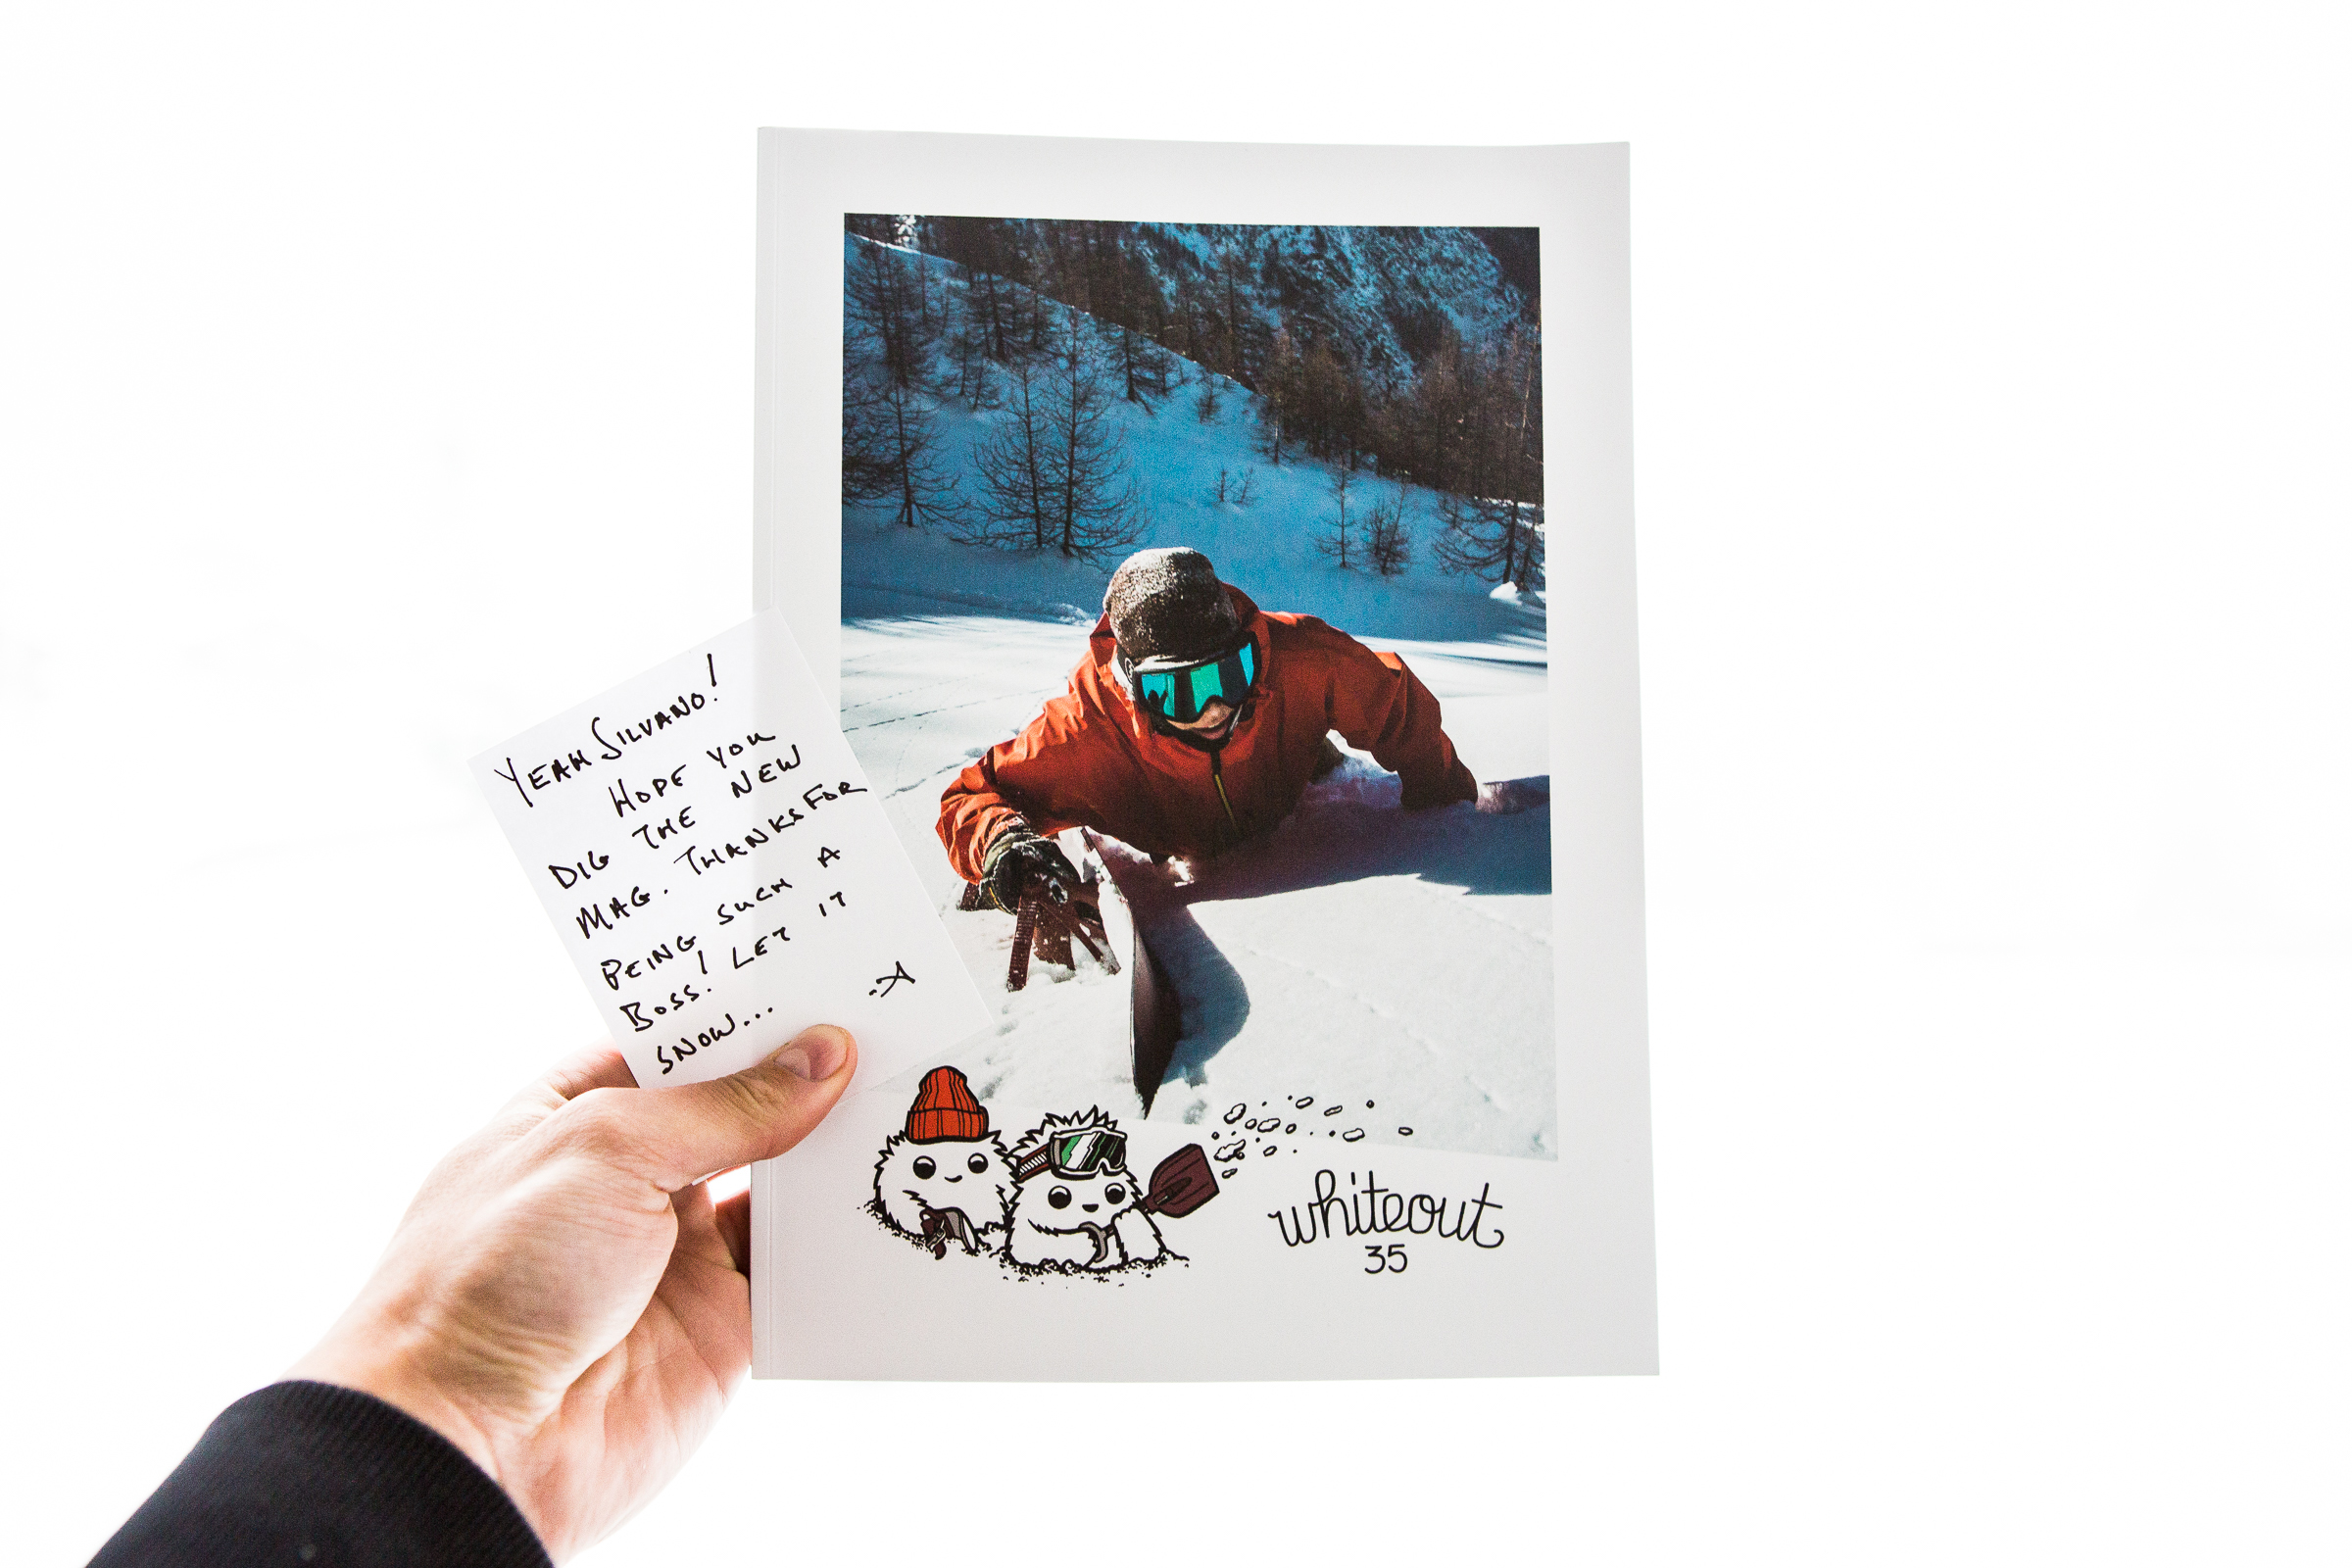 YEAH SILVANO!
HOPE YOU
DIG THE NEW
MAG. THANKS FOR
BEING SUCH A
BOSS! LET IT
SNOW... -A
whiteout
35